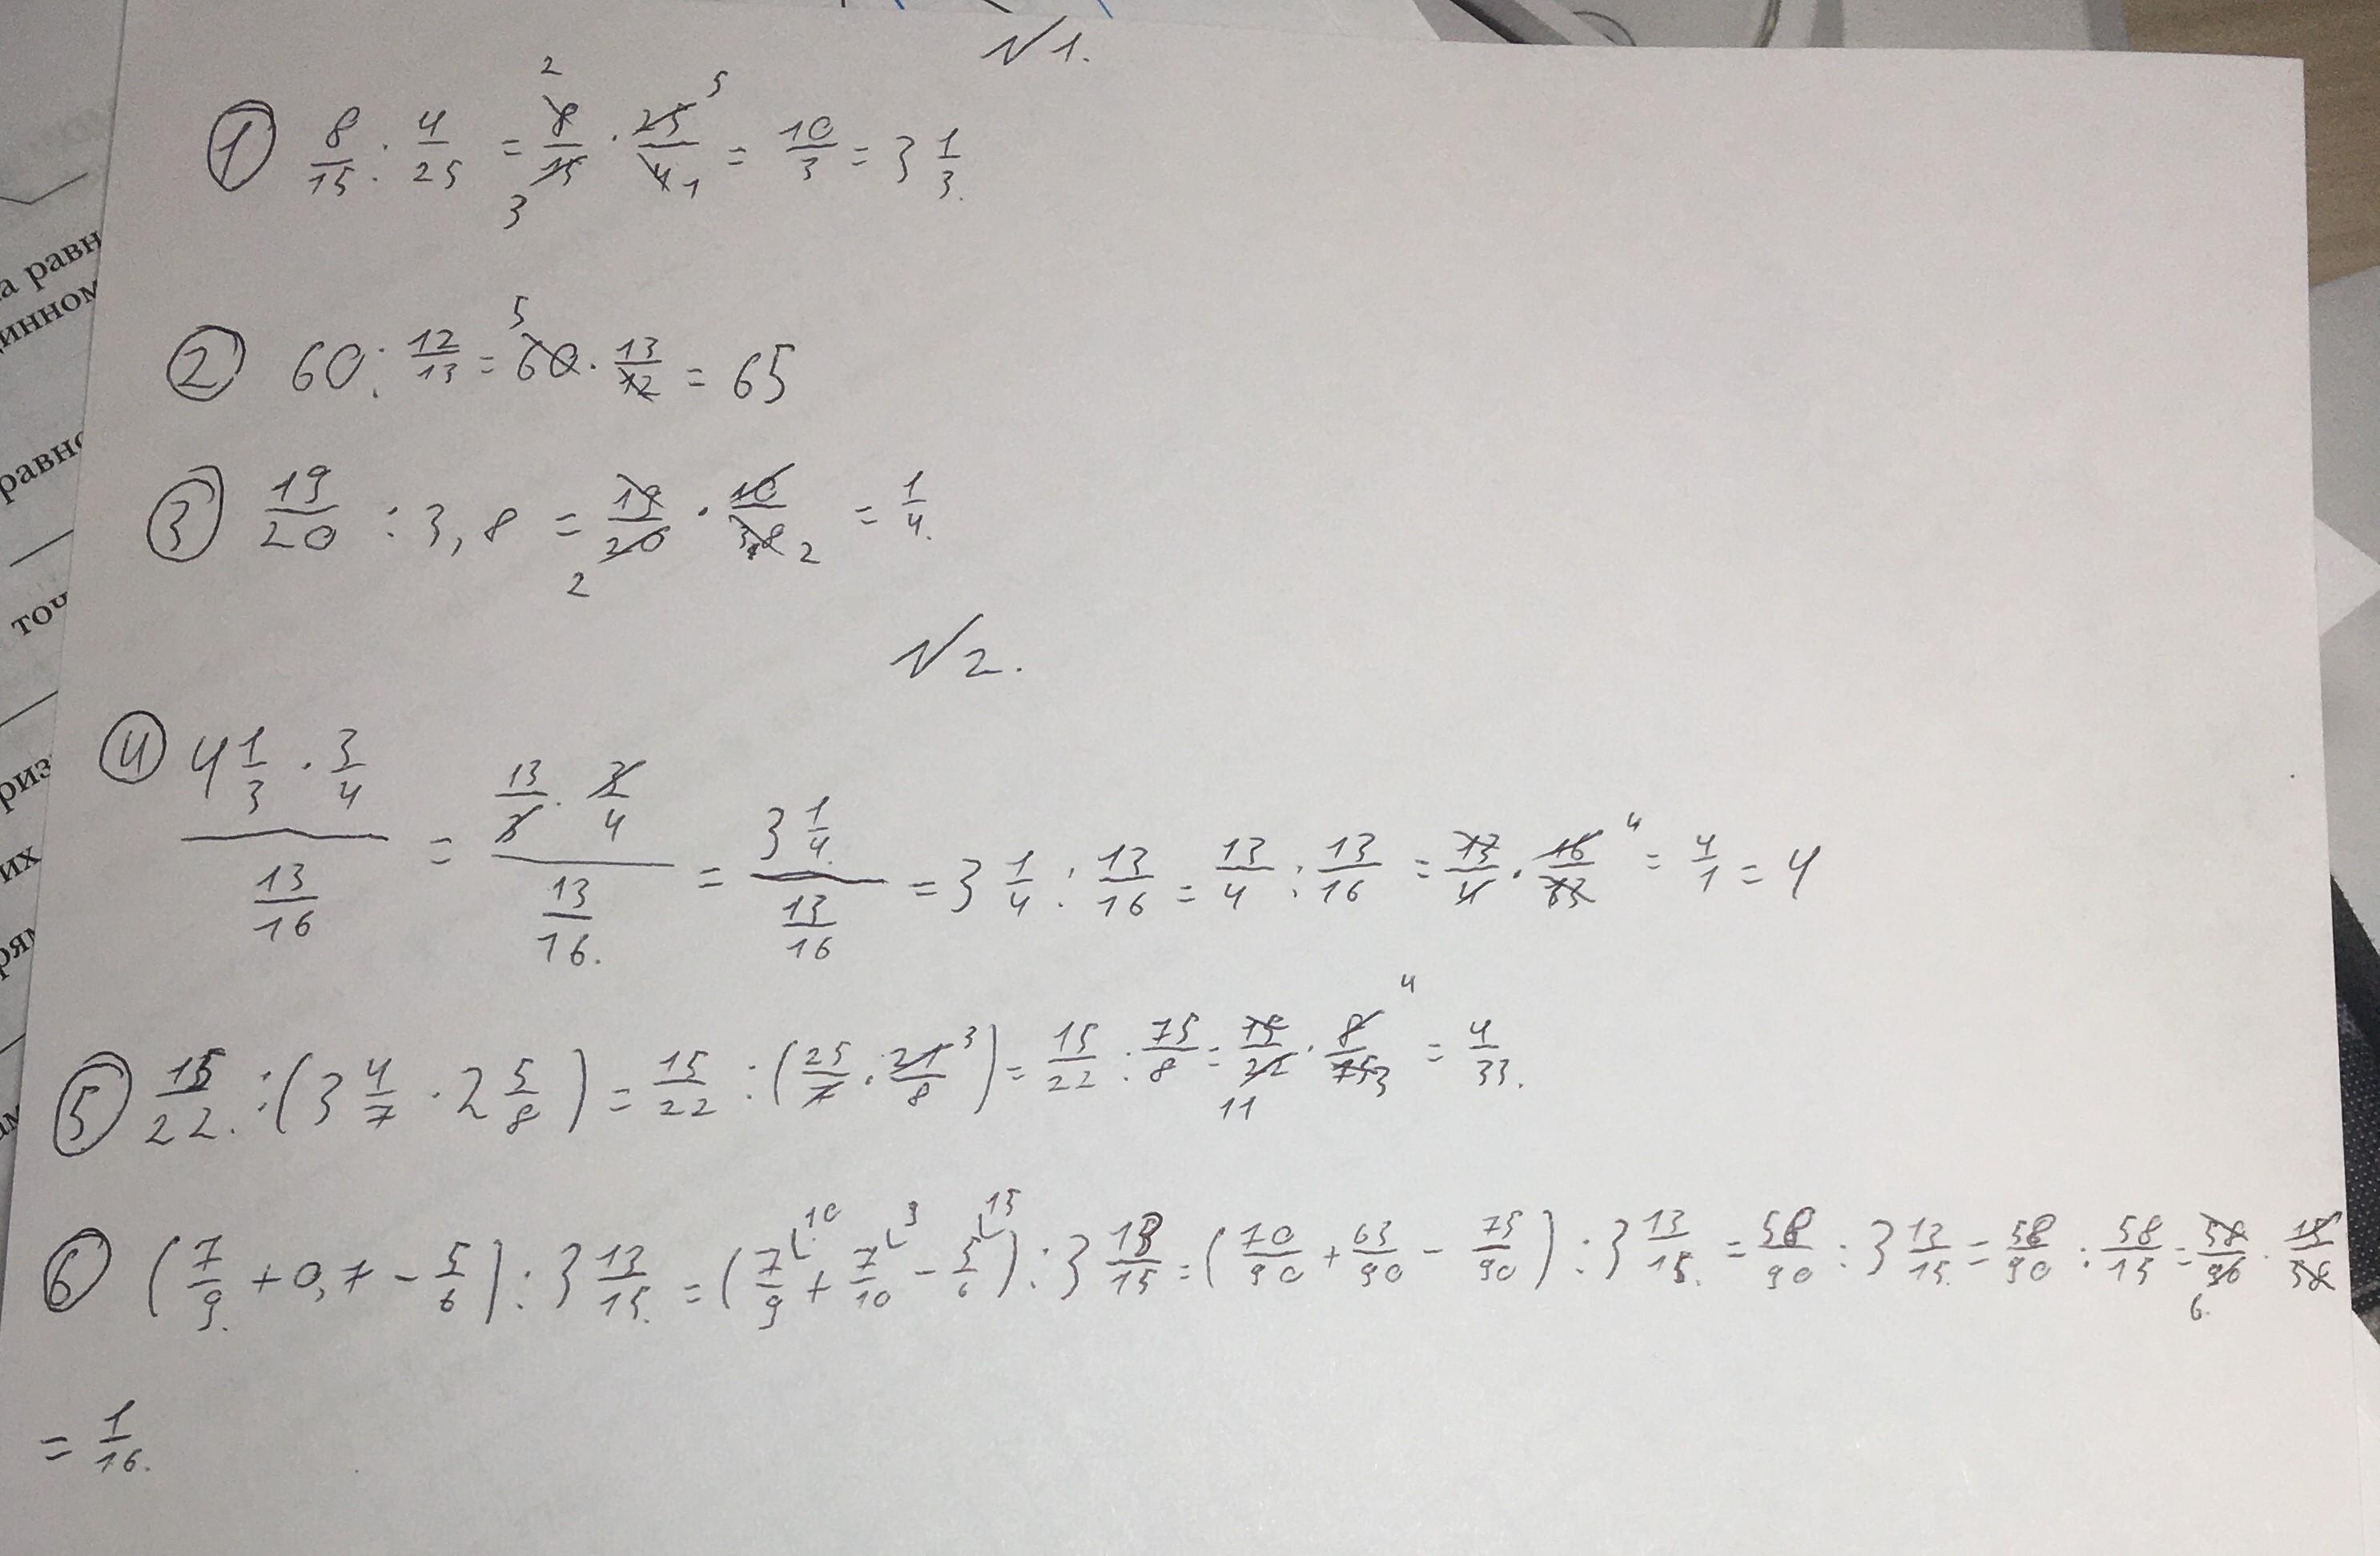 №1.
① 8/15 : 4/25 = 8/15 · 25/4 = 10/3 = 3 1/3.
② 60 : 12/13 = 60 · 13/12 = 65
③ 19/20 : 3,8 = 19/20 · 10/38 = 1/4.
№2.
④ (4 1/3 · 3/4)/(13/16) = (13/3 · 3/4)/(13/16.) = (3 1/4.)/(13/16) = 3 1/4 : 13/16 = 13/4 : 13/16 = 13/4 · 16/13 = 4/1 = 4
⑤ 15/22. : (3 4/7 · 2 5/8) = 15/22 : (25/7 · 21/8) = 15/22 : 75/8 = 15/22 · 8/75 = 4/33.
⑥ (7/9. + 0,7 - 5/6) : 3 13/15. = (7/9 + 7/10 - 5/6) : 3 13/15 = (70/90 + 63/90 - 75/90) : 3 13/15. = 58/90 : 3 13/15. = 58/90 : 58/15 = 58/90 · 15/58
= 1/16.
а равн
динном
равно
точ
риз
их
рям